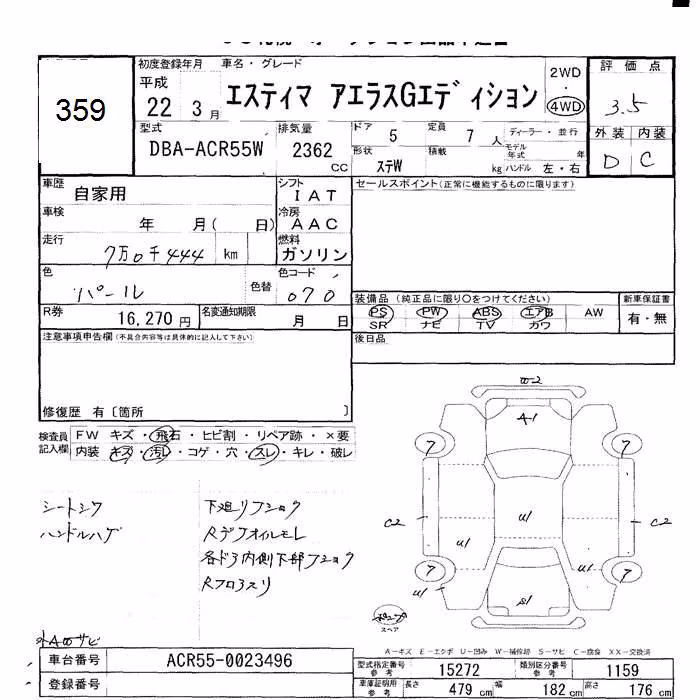 359
初度登録年月 車名・グレード
平成
22 3月
エスティマ アエラスGエディション
2WD
・
4WD
評価点
3.5
外装 内装
D C
型式
DBA-ACR55W
排気量
2362 CC
ドア 5
定員 7人
ディーラー・並行
形状 ステW
積載 kg
モデル年式 年
ハンドル 左・右
車歴 自家用
シフト IAT
車検 年 月( 日)
冷房 AAC
走行 7万0千444 km
燃料 ガソリン
色 パール
色替
色コード 070
R券 16,270円
名変通知期限 月 日
セールスポイント(正常に機能するものに限ります)
装備品(純正品に限り○をつけてください)
PS PW ABS エアB AW
SR ナビ TV カワ
新車保証書
有・無
後日品
注意事項申告欄(不具合内容等は具体的に記入して下さい)
修復歴 有〔箇所 〕
検査員記入欄
FW キズ・飛石・ヒビ割・リペア跡・×要
内装 キズ・汚レ・コゲ・穴・スレ・キレ・破レ
シートシワ
ハンドルハゲ
下廻リフショク
Rデフオイルモレ
各ドア内側下部フショク
Rフロアスリ
W-2
A-1
7
7
C2
U1
C2
U1
U1
7
7
U1
S1
スペア
A-キズ E-エクボ U-凹み W-補修跡 S-サビ C-腐食 XX-交換済
車台番号 ACR55-0023496
登録番号
型式指定番号 参考 15272
類別区分番号 参考 1159
車庫証明用 参考 長さ 479cm 幅 182cm 高さ 176cm